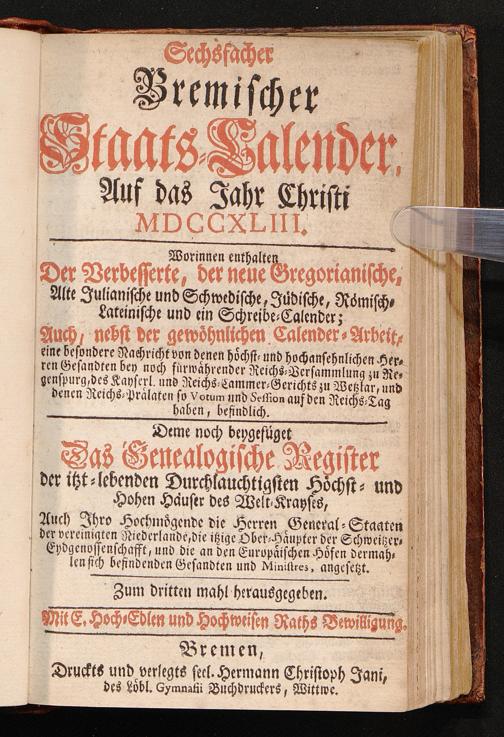 Sechsfacher
Bremischer
Staats-Calender,
Auf das Jahr Christi
MDCCXLIII.
Worinnen enthalten
Der Verbesserte, der neue Gregorianische,
Alte Julianische und Schwedische, Jüdische, Römisch-
Lateinische und ein Schreibe-Calender;
Auch, nebst der gewöhnlichen Calender-Arbeit,
eine besondere Nachricht von denen höchst- und hochansehnlichen Her-
ren Gesandten bey noch fürwährender Reichs-Versammlung zu Re-
genspurg, des Kayserl. und Reichs-Cammer-Gerichts zu Wetzlar, und
denen Reichs-Prälaten so Votum und Session auf den Reichs-Tag
haben, befindlich.
Deme noch beygefüget
Das Genealogische Register
der itzt-lebenden Durchlauchtigsten Höchst- und
Hohen Häuser des Welt-Krayses,
Auch Ihro Hochmögende die Herren General-Staaten
der vereinigten Niederlande, die itzige Ober-Häupter der Schweitzer-
Eydgenossenschafft, und die an den Europäischen Höfen dermah-
len sich befindenden Gesandten und Ministres, angesetzt.
Zum dritten mahl herausgegeben.
Mit E. Hoch-Edlen und Hochweisen Raths Bewilligung.
Bremen,
Druckts und verlegts seel. Hermann Christoph Jani,
des Löbl. Gymnasii Buchdruckers, Wittwe.